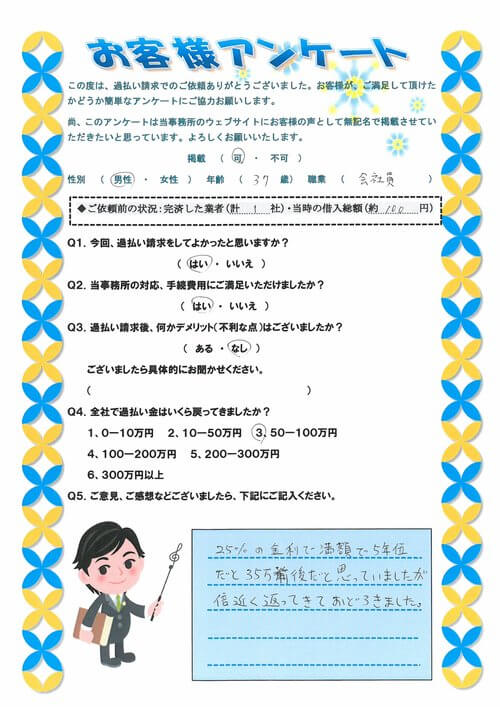 お客様アンケート
この度は、過払い請求でのご依頼ありがとうございました。お客様が、ご満足して頂けた
かどうか簡単なアンケートにご協力お願いします。
尚、このアンケートは当事務所のウェブサイトにお客様の声として無記名で掲載させてい
ただきたいと思っています。よろしくお願いいたします。
掲載 ( 可 ・ 不可 )
性別 ( 男性 ・ 女性 ) 年齢 ( 37 歳) 職業 ( 会社員 )
◆ご依頼前の状況：完済した業者(計 1 社)・当時の借入総額(約 100 円)
Q1. 今回、過払い請求をしてよかったと思いますか？
( はい ・ いいえ )
Q2. 当事務所の対応、手続費用にご満足いただけましたか？
( はい ・ いいえ )
Q3. 過払い請求後、何かデメリット(不利な点)はございましたか？
( ある ・ なし )
ございましたら具体的にお聞かせください。
( )
Q4. 全社で過払い金はいくら戻ってきましたか？
1、0－10万円 2、10－50万円 3、50－100万円
4、100－200万円 5、200－300万円
6、300万円以上
Q5. ご意見、ご感想などございましたら、下記にご記入ください。
25%の金利で満額で5年位
だと35万前後だと思っていましたが
倍近く返ってきておどろきました。